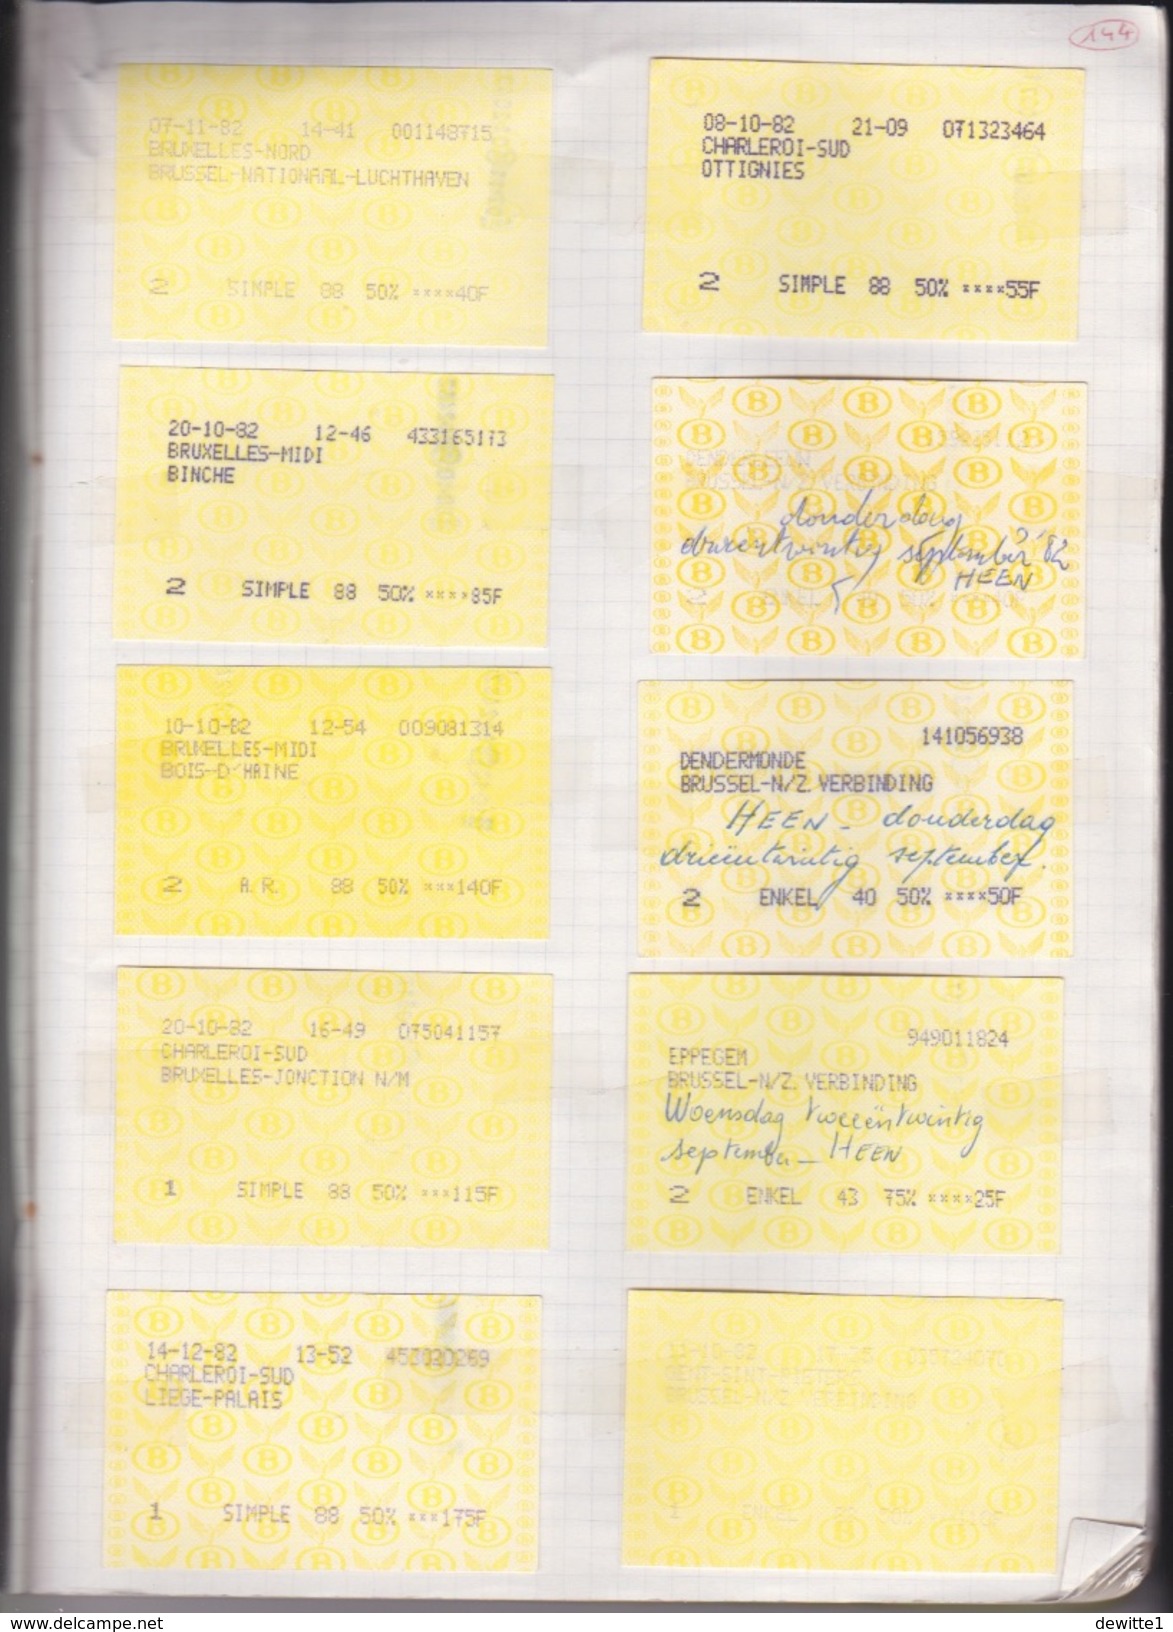 144
07-11-82 14-41 001148715
BRUXELLES-NORD
BRUSSEL-NATIONAAL-LUCHTHAVEN
2 SIMPLE 88 50% ****40F
20-10-82 12-46 433165173
BRUXELLES-MIDI
BINCHE
2 SIMPLE 88 50% ****85F
10-10-82 12-54 009081314
BRUXELLES-MIDI
BOIS-D'HAINE
2 A.R. 88 50% ***140F
20-10-82 16-49 075041157
CHARLEROI-SUD
BRUXELLES-JONCTION N/M
1 SIMPLE 88 50% ***115F
14-12-82 13-52 453020269
CHARLEROI-SUD
LIEGE-PALAIS
1 SIMPLE 88 50% ***175F
08-10-82 21-09 071323464
CHARLEROI-SUD
OTTIGNIES
2 SIMPLE 88 50% ****55F
BRUSSEL-N/Z. VERBINDING
donderdag
september '82
HEEN
2
141056938
DENDERMONDE
BRUSSEL-N/Z. VERBINDING
HEEN - donderdag
drieëntwintig september.
2 ENKEL 40 50% ****50F
949011824
EPPEGEM
BRUSSEL-N/Z. VERBINDING
Woensdag tweeëntwintig
september - HEEN
2 ENKEL 43 75% ****25F
BRUSSEL-N/Z. VERBINDING
ENKEL
www.delcampe.net
dewitte1